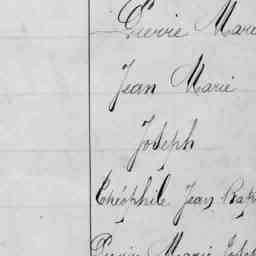 Pierre Marie
Jean Marie
Joseph
Théophile Jean Bap
Pierre Marie Jose